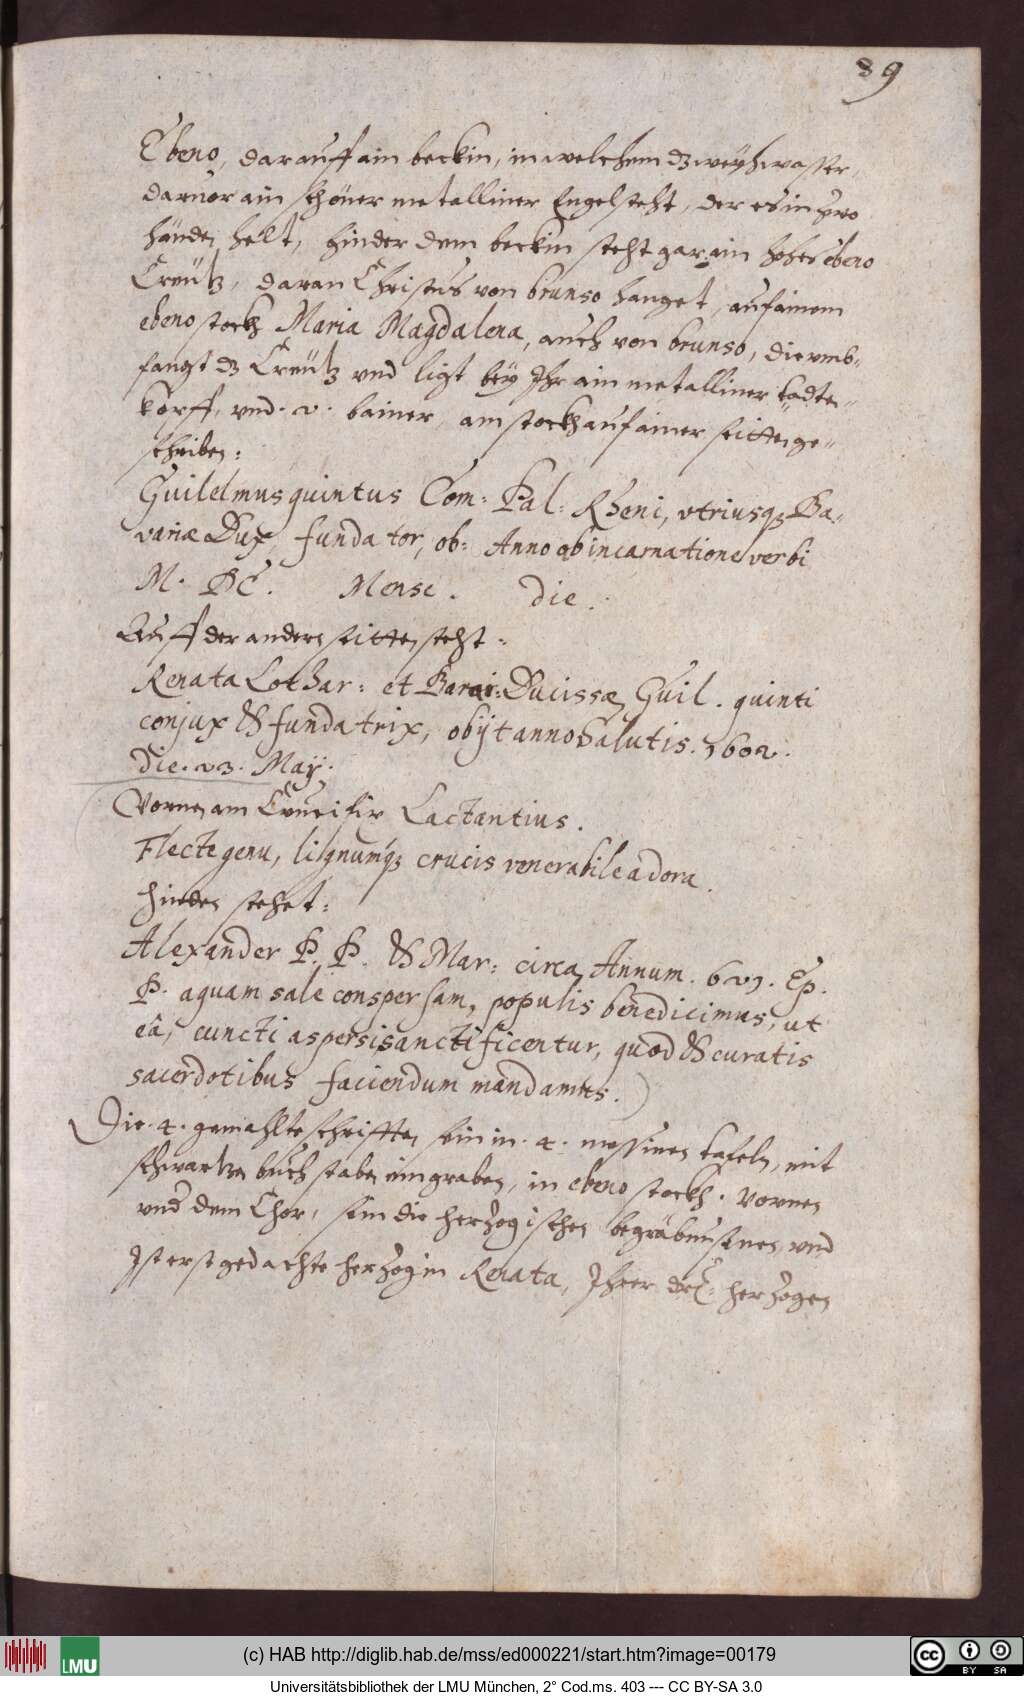 89
Ebeno, darauff ain beckin, in welchem dz weyhwasser,
darvor ain schöner metalliner Engel steht, der es in zwo
händen helt, hinder dem beckin steht gar ain hohes ebeno
Creütz, daran Christus von brunso hanget, auf ainem
ebeno stockh Maria Magdalena, auch von brunso, die umb-
fangt dz Creütz und ligt bey Ihr ain metalliner todten-
kopff, und. 2. bainer, am stockh auf ainer seitten ge-
schriben:
Guilelmus quintus Com: Pal: Rheni, utriusq; Ba-
variæ Dux, fundator, ob: Anno ab incarnatione verbi
M. DC. Mense. die.
Auff der andern seitten steht:
Renata Lothar: et Barri: Ducissa, Guil. quinti
conjux & fundatrix, obijt anno salutis. 1602.
die. 23. Maÿ.
Vornen am Crucifix Lactantius.
Flecte genu, lignumq; crucis venerabile adora.
hinden stehet:
Alexander P. P. & Mar: circa Annum. 121. Ep.
P. aquam sale conspersam, populis benedicimus, ut
eâ, cuncti aspersi sanctificentur, quod & curatis
sacerdotibus faciendum mandamus.)
Die. 4. gemahlte schrifften sein in. 4. messinen tafeln, mit
schwartzen buchstaben eingraben, in ebeno stockh. Vornen
und dem Chor, sein die herzogischen begräbnussen, und
Ist erstgedachte herzogin Renata, Ihrer drl: herzogen
(c) HAB http://diglib.hab.de/mss/ed000221/start.htm?image=00179
LMU
cc BY SA
Universitätsbibliothek der LMU München, 2° Cod.ms. 403 --- CC BY-SA 3.0